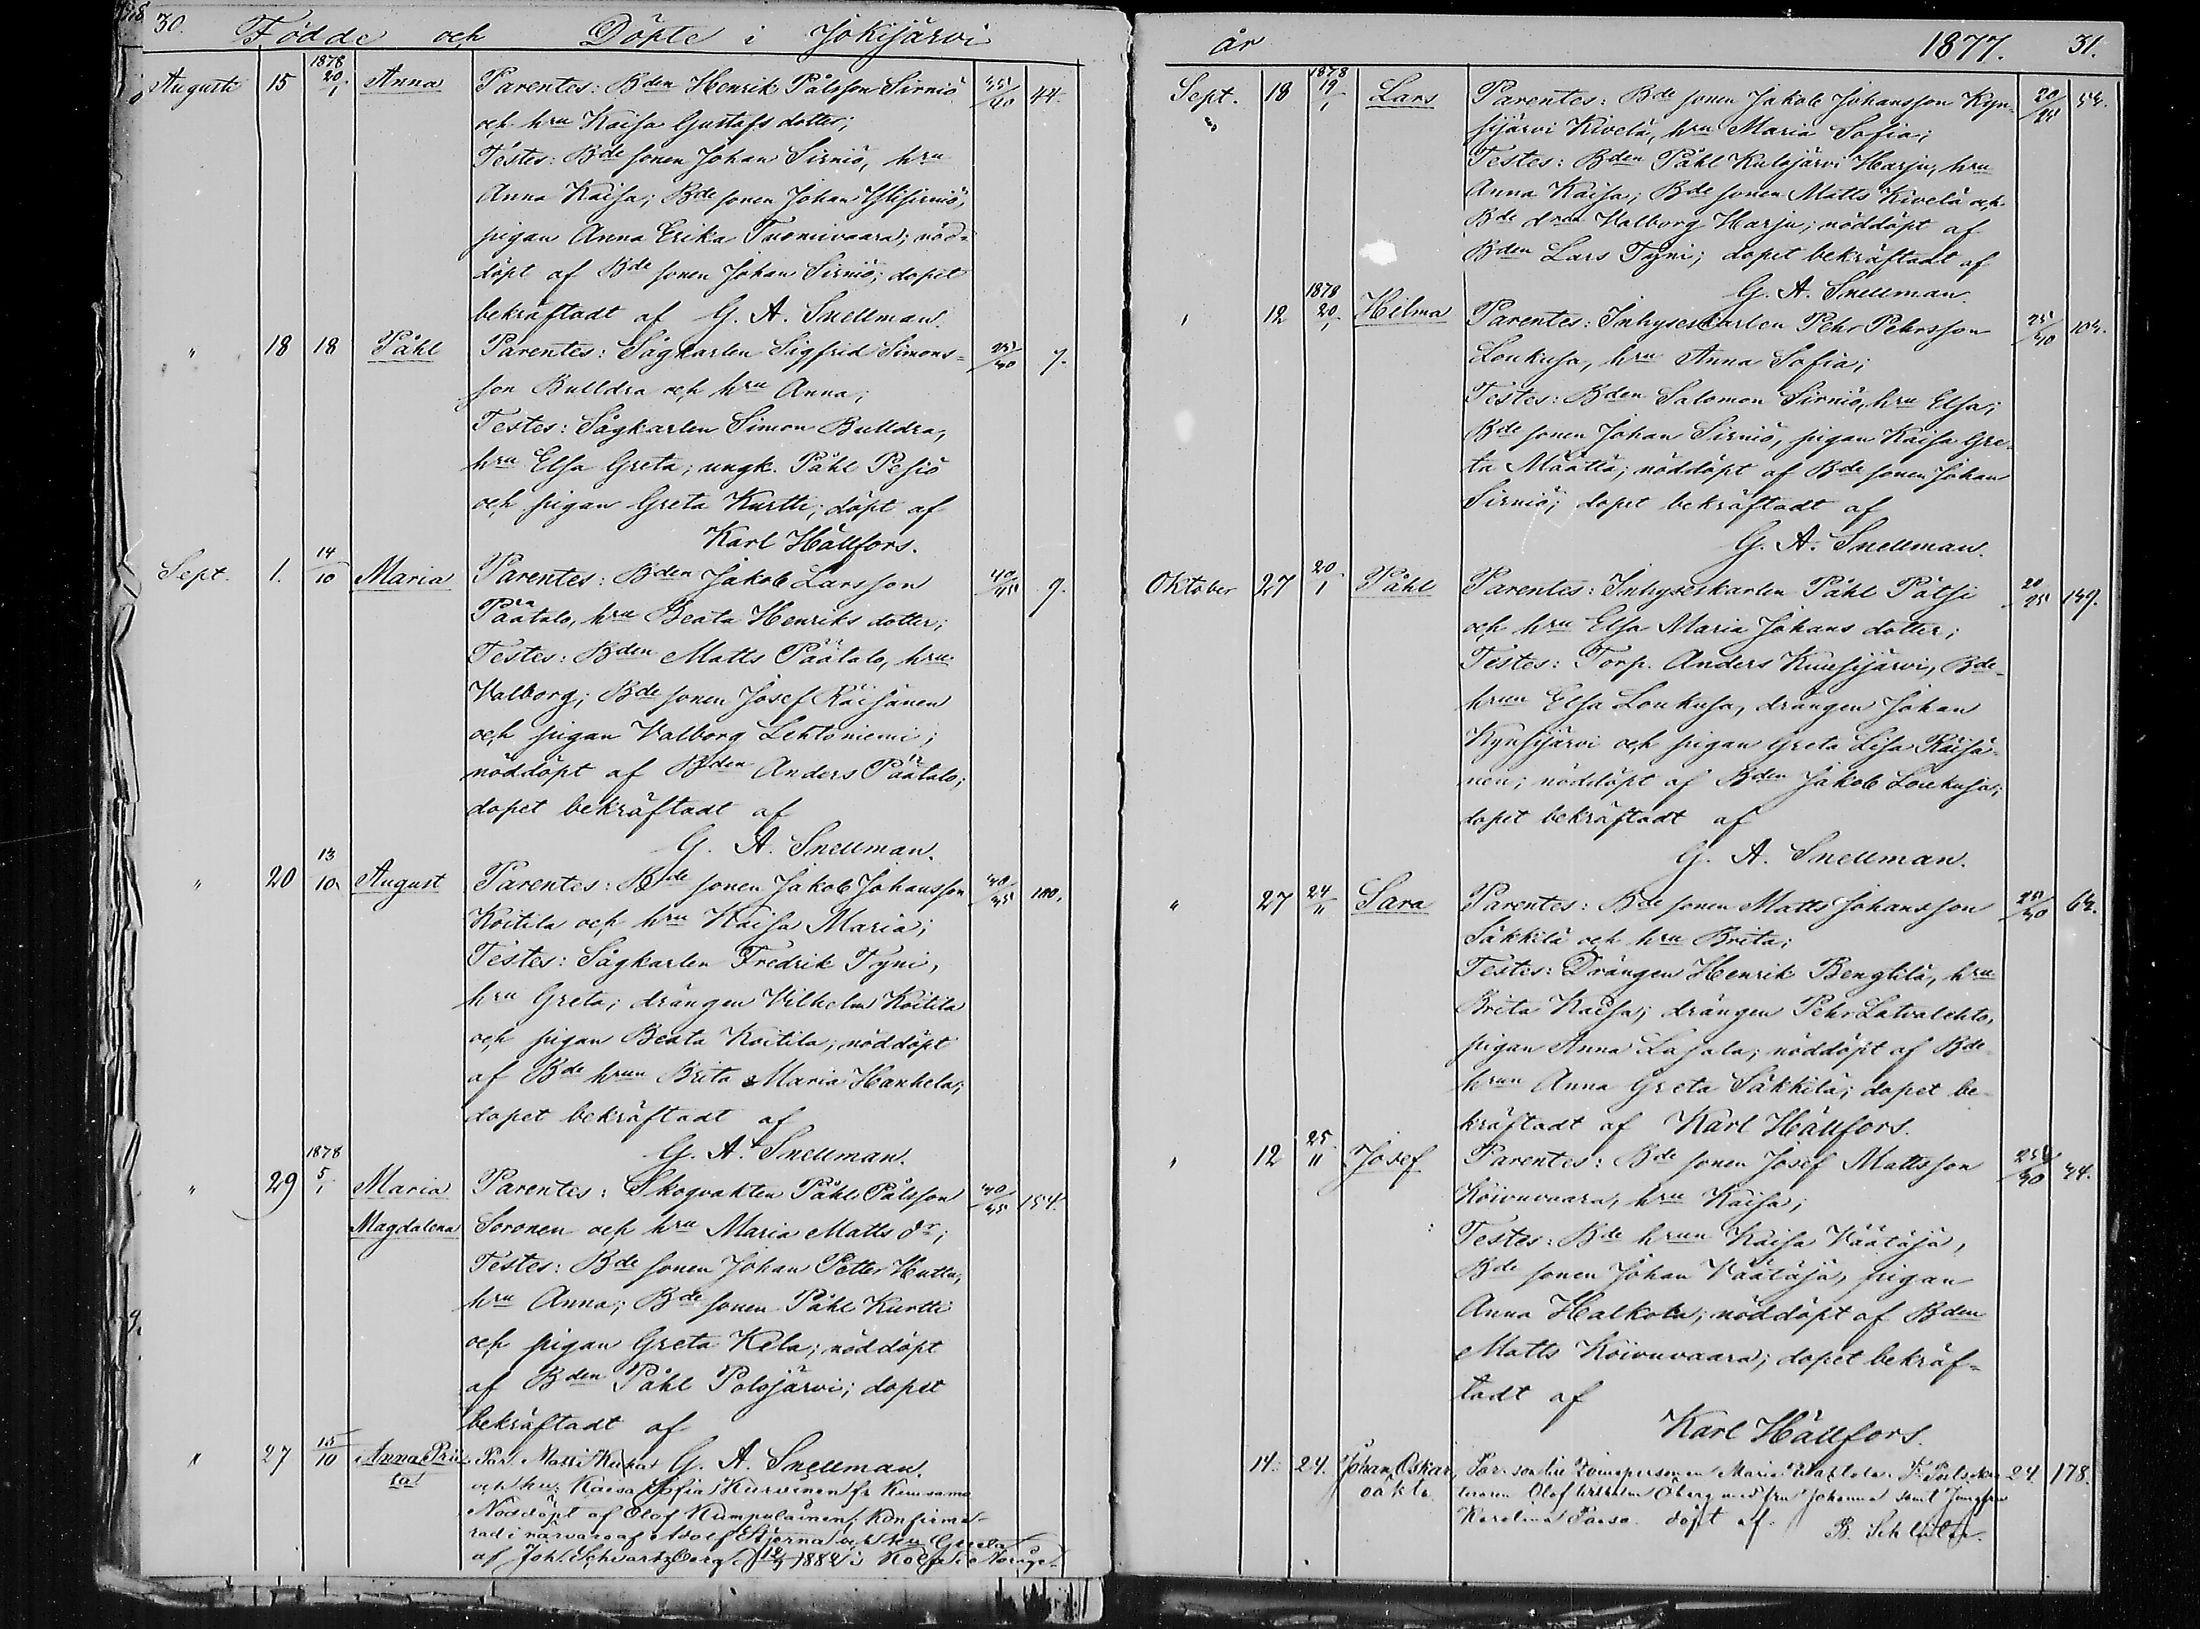 30. Födde och Döpte i Jokijärvi
Augusti 15 1878 20/1 Anna Parentes: Bden Henrik Pålsson Sirniö 35/40 44.
och hru Kaisa Gustafs dotter;
Testes: Bde sonen Johan Sirniö, hru
Anna Kaisa; Bde sonen Johan Ylisirniö,
pigan Anna Erika Tuomivaara; nöd-
döpt af Bde sonen Johan Sirniö; dopet
bekräftadt af G. A. Snellman.
" 18 18 Påhl Parentes: Sågkarlen Sigfrid Simons- 7.
son Bulldra och hru Anna;
Testes: Sågkarlen Simon Bulldra,
hru Elsa Greta; ungk. Påhl Pesiö
och pigan Greta Kurtti; döpt af
Karl Hällfors.
Sept. 1. 14/10 Maria Parentes: Bden Jakob Larsson 40/45 9.
Päätalo, hru Beata Henriks dotter;
Testes: Bden Matts Päätalo, hru
Valborg; Bde sonen Josef Räisänen
och pigan Valborg Lehtoniemi;
nöddöpt af Bden Anders Päätalo;
dopet bekräftadt af
G. A. Snellman.
" 20 13/10 August Parentes: Bde sonen Jakob Johansson 30/35 100.
Koitila och hru Kaisa Maria;
Testes: Sågkarlen Fredrik Tyni,
hru Greta; drängen Vilhelm Koitila
och pigan Beata Koitila; nöddöpt
af Bde hrun Brita Maria Hanhela;
dopet bekräftadt af
G. A. Snellman.
" 29 1878 5/1 Maria Parentes: Skogvakten Påhl Pålsson 30/35 154.
Magdalena Soronen och hru Maria Matts dr;
Testes: Bde sonen Johan Petter Huttu,
hru Anna; Bde sonen Påhl Kurtti
och pigan Greta Kela; nöddöpt
af Bden Påhl Polojärvi; dopet
bekräftadt af
" 27 15/10 Anna Brita Par. Matti G. A. Snellman.
och hu: Kaisa Sofia Kurvinen fr Kuusamo
Nöddöpt af Olof Kumpulainen; Konfirme-
rad i närvaro af Adolf Stjerna och hu Greeta
af Joh. Schwartzberg 1882 i Norige.
år 1877. 31.
Sept. 18 1878 19/1 Lars Parentes: Bde sonen Jakob Johansson Kyn- 20/25
sijärvi Kivelä, hru Maria Sofia;
Testes: Bden Påhl Kulojärvi Harju, hru
Anna Kaisa; Bde sonen Matts Kivelä och
Bde dran Valborg Harju; nöddöpt af
Bden Lars Tyni; dopet bekräftadt af
G. A. Snellman.
" 12 1878 20/1 Hilma Parentes: Inhyseskarlen Pehr Pehrsson
Loukusa, hru Anna Sofia;
Testes: Bden Salomon Sirniö, hru Elsa;
Bde sonen Johan Sirniö, pigan Kaisa Gre-
ta Määttä; nöddöpt af Bde sonen Johan
Sirniö; dopet bekräftadt af
G. A. Snellman.
Oktober 27 20/1 Påhl Parentes: Inhyseskarlen Påhl Pätsi 20/25 149.
och hru Elsa Maria Johans dotter;
Testes: Torp. Anders Kuusijärvi, Bde
hrun Elsa Loukusa, drängen Johan
Kynsijärvi och pigan Greta Lisa Räisä-
nen; nöddöpt af Bden Jakob Loukusa;
dopet bekräftadt af
G. A. Snellman.
" 27 24/11 Sara Parentes: Bde sonen Matts Johansson
Säkkilä och hru Brita;
Testes: Drängen Henrik Bengtilä, hru
Brita Kaisa; drängen Pehr Latvalehto,
pigan Anna Lasala; nöddöpt af Bde
hrun Anna Greta Säkkilä; dopet be-
kräftadt af Karl Hällfors.
" 12 25/11 Josef Parentes: Bde sonen Josef Mattsson
Koivuvaara, hru Kaisa;
Testes: Bde hrun Kaisa Väätäjä,
Bde sonen Johan Väätäjä, pigan
Anna Halkola; nöddöpt af Bden
Matts Koivuvaara; dopet bekräf-
tadt af
Karl Hällfors.
14. 24. Johan Oskar Maria 24. 178.
oäkta Olof Wilhelm Öberg med fru Johanna samt Jungfru
Karolina döpt af B.